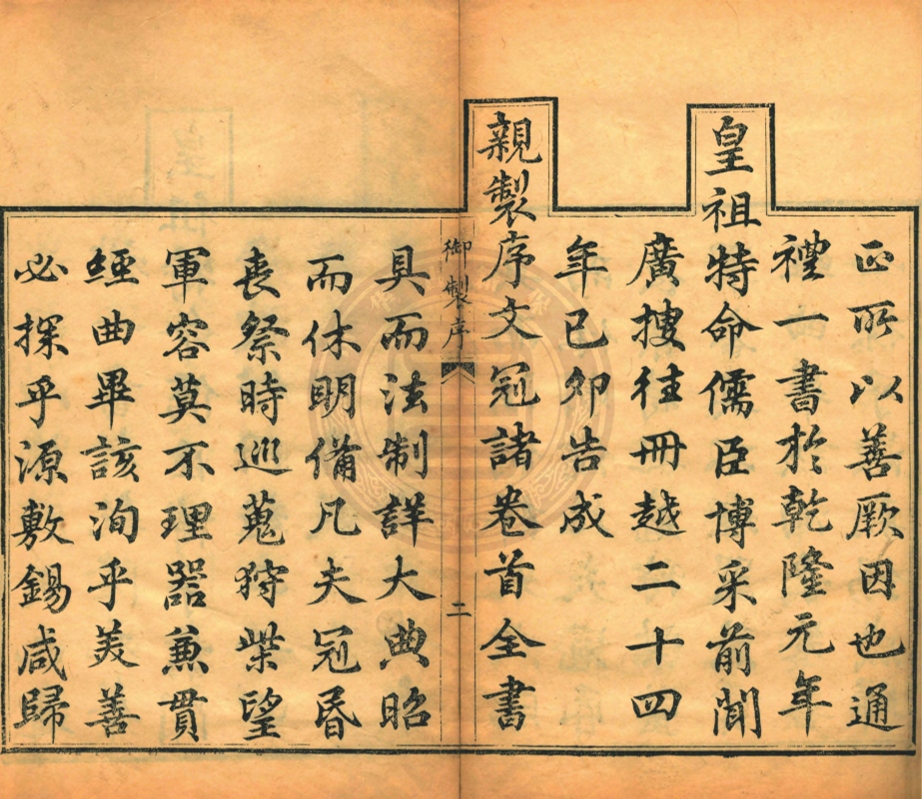 正所以善厥因也通
禮一書於乾隆元年
皇祖特命儒臣博采前聞
廣搜往冊越二十四
年己卯告成
親製序文冠諸卷首全書
御製序
二
具而法制詳大典昭
而休明備凡夫冠昏
喪祭時巡蒐狩柴望
軍容莫不理器兼貫
經曲畢該洵乎美善
必探乎源敷錫咸歸